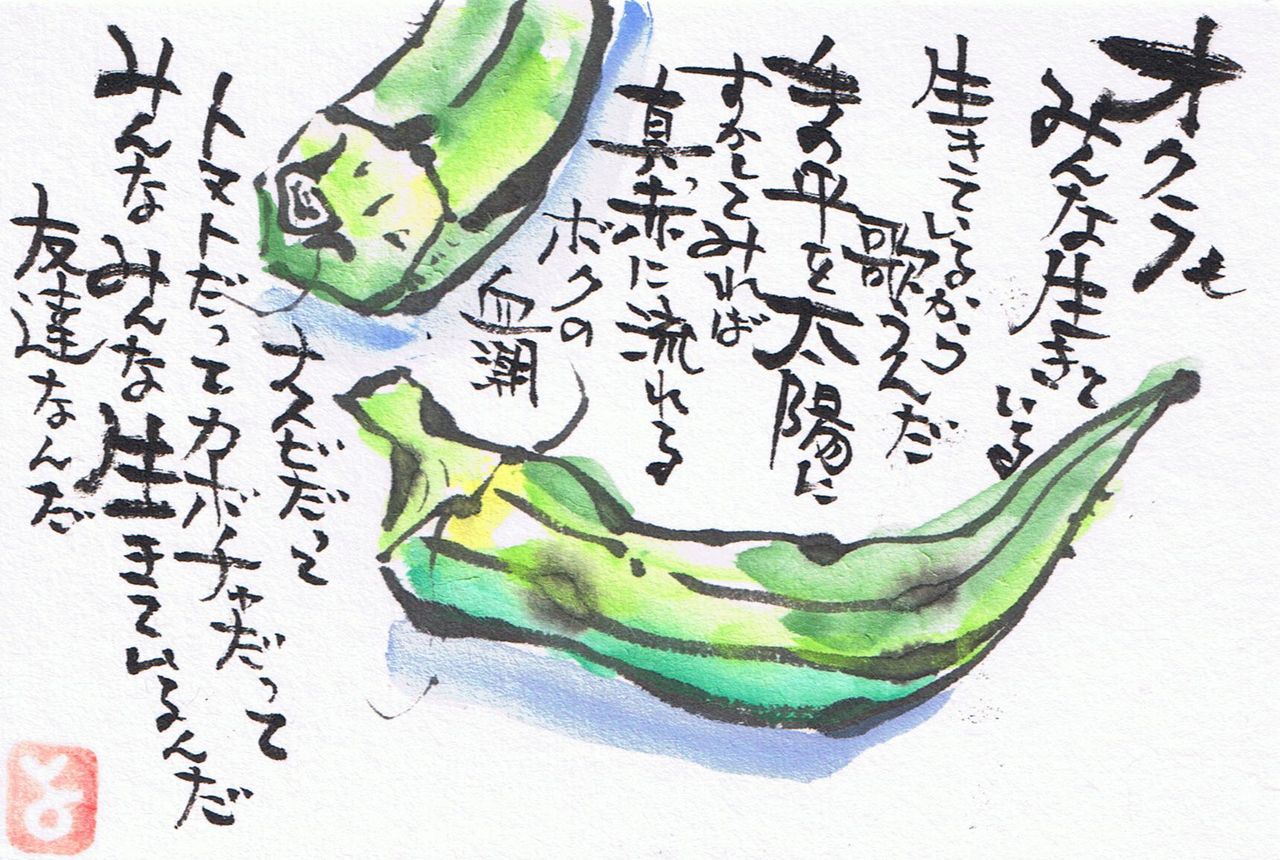 オクラも
みんな生きて
いる
生きているから
歌うんだ
手の平を太陽に
すかしてみれば
真っ赤に流れる
ボクの
血潮
ナスビだって
トマトだってカボチャだって
みんなみんな生きているんだ
友達なんだ